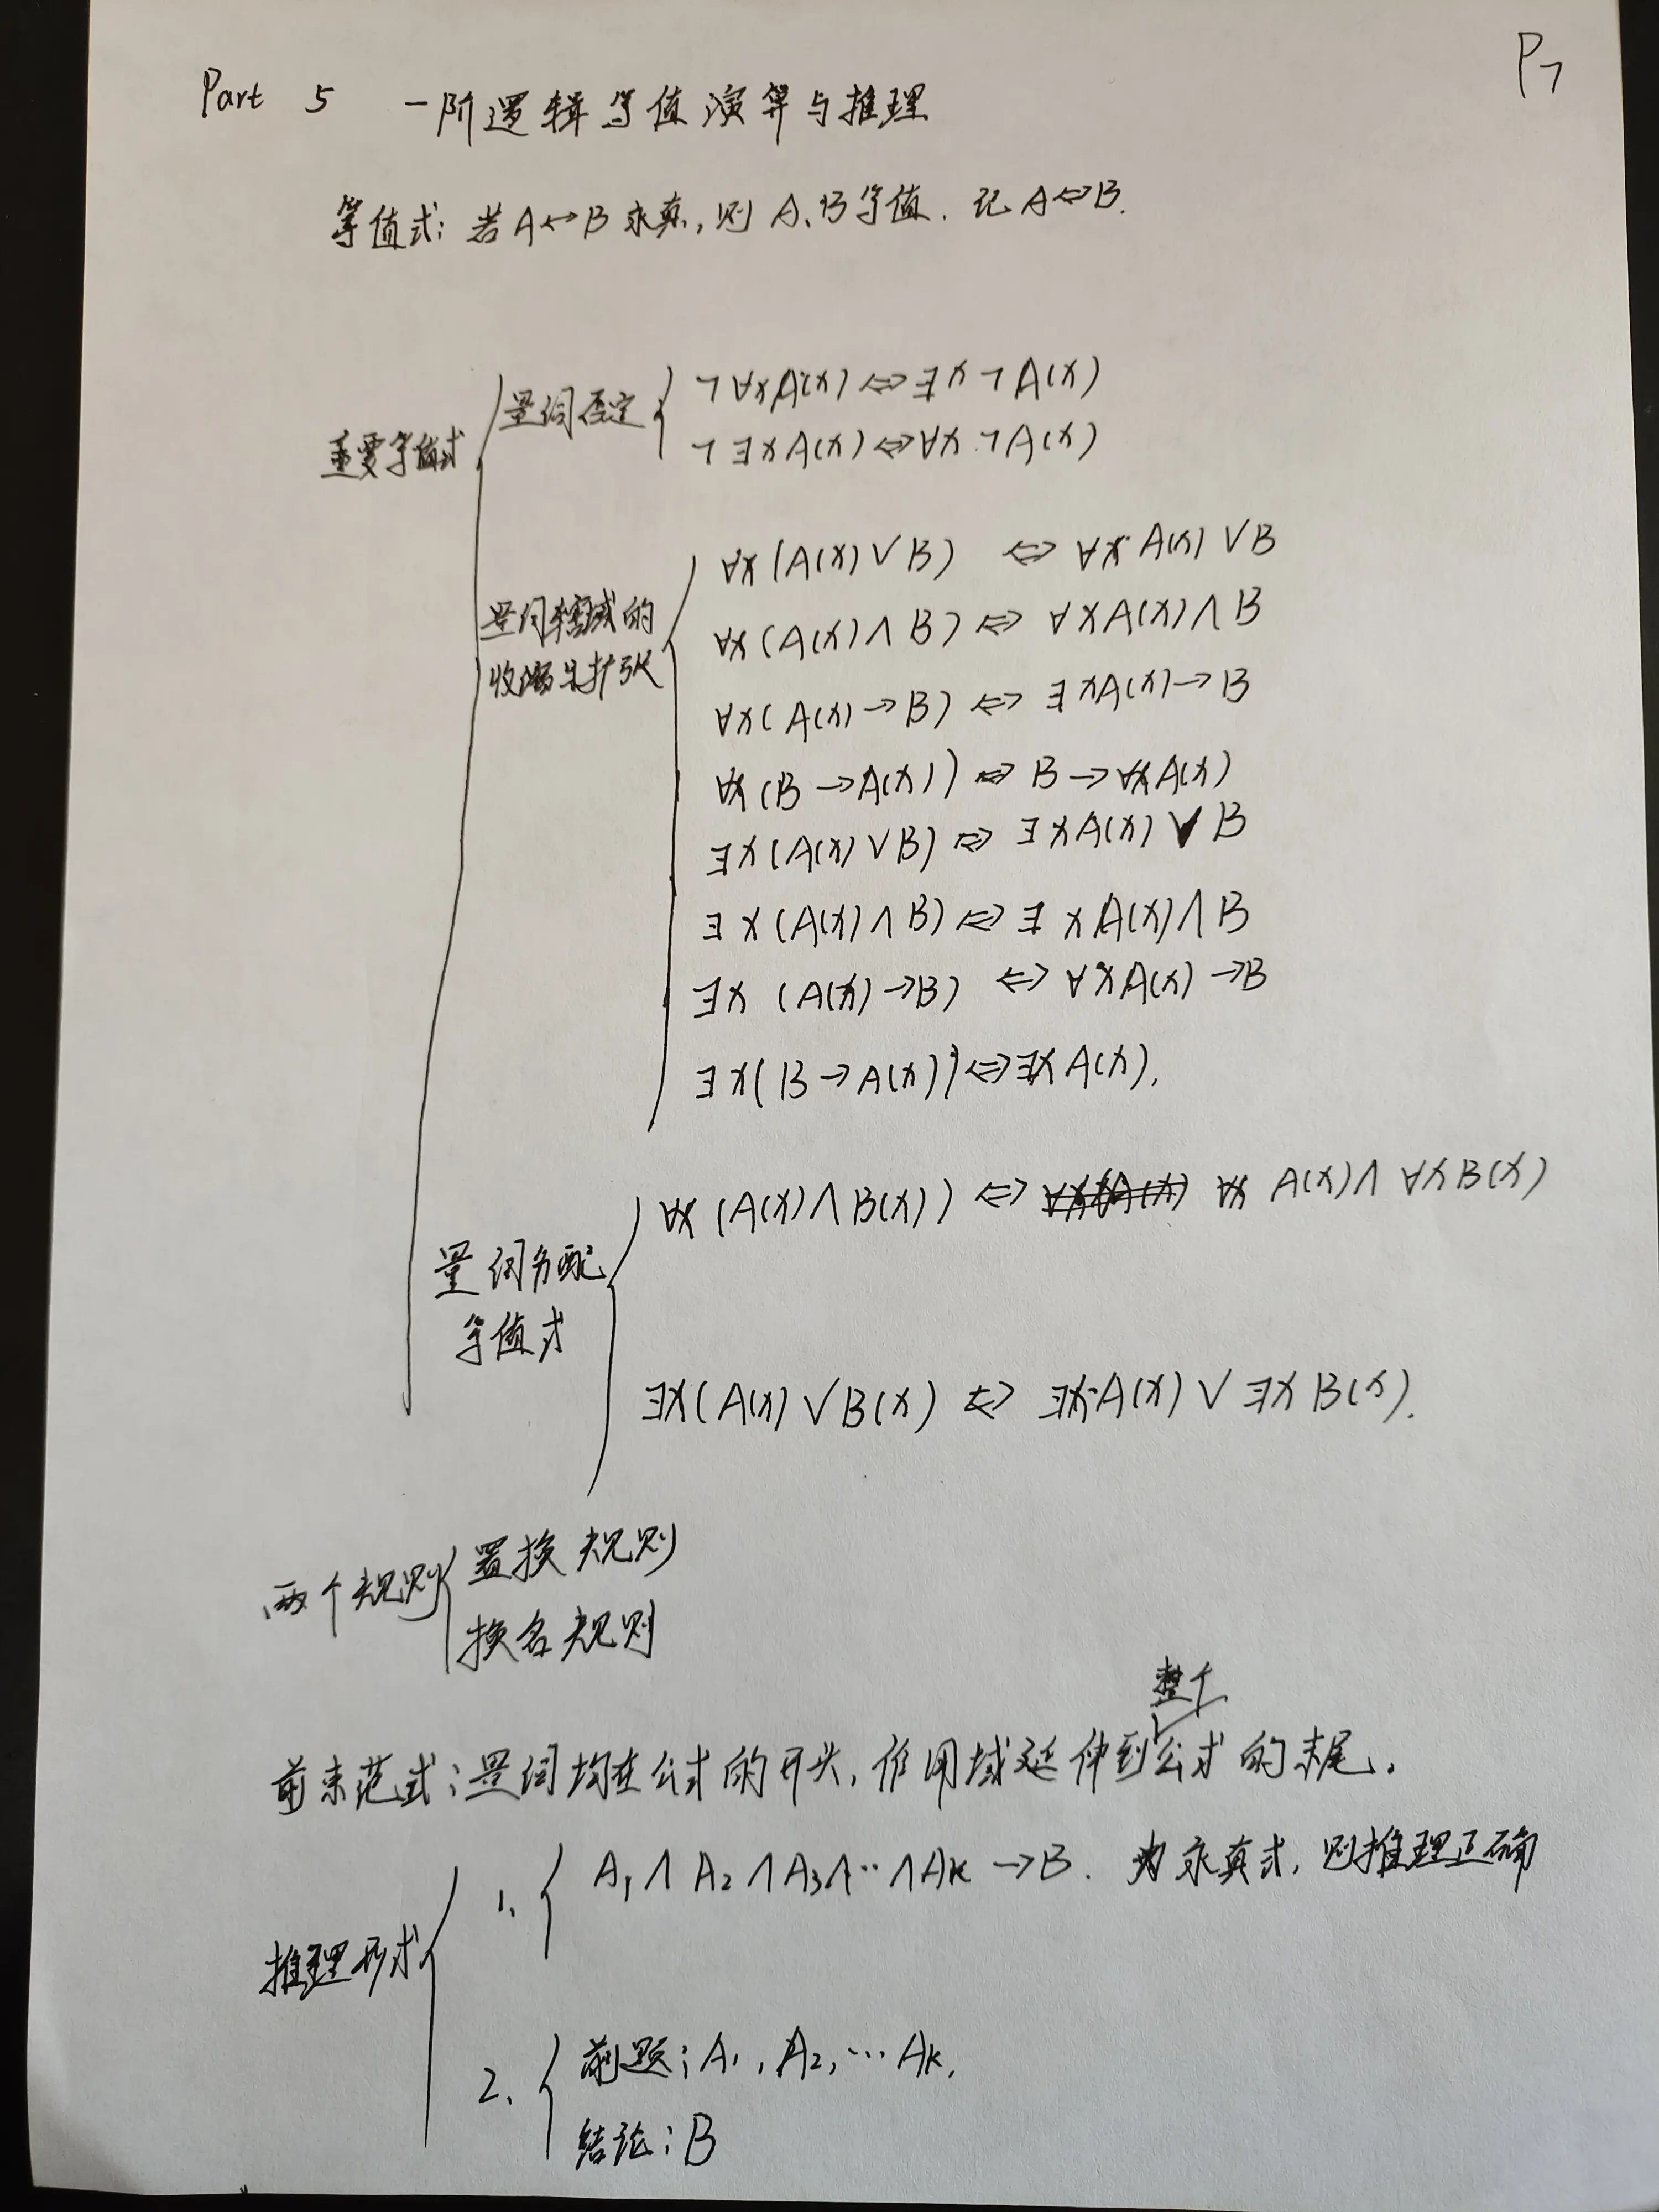 P7
Part 5 一阶逻辑等值演算与推理
等值式：若A↔B永真，则A、B等值．记A⇔B.
重要等值式
量词否定
¬∀xA(x)⇔∃x¬A(x)
¬∃xA(x)⇔∀x¬A(x)
量词辖域的
收缩与扩张
∀x(A(x)∨B) ⇔ ∀xA(x)∨B
∀x(A(x)∧B)⇔ ∀xA(x)∧B
∀x(A(x)→B)⇔ ∃xA(x)→B
∀x(B→A(x))⇔B→∀xA(x)
∃x(A(x)∨B)⇔∃xA(x)∨B
∃x(A(x)∧B)⇔∃xA(x)∧B
∃x(A(x)→B) ⇔∀xA(x)→B
∃x(B→A(x))⇔∃xA(x).
量词分配
等值式
∀x(A(x)∧B(x))⇔ ∀x A(x)∧∀xB(x)
∃x(A(x)∨B(x) ⇔ ∃xA(x)∨∃xB(x).
两个规则
置换规则
换名规则
整个
前束范式：量词均在公式的开头，作用域延伸到公式的末尾。
推理形式
1. A₁∧A₂∧A₃∧…∧Ak→B. 为永真式，则推理正确
2. 前题：A₁,A₂,…Ak.
结论：B